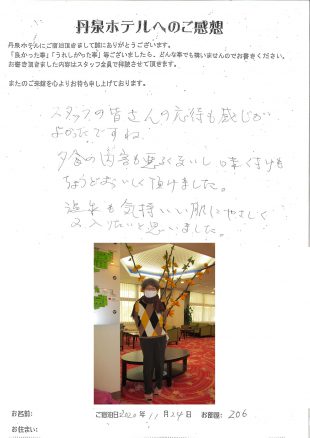 丹泉ホテルへのご感想
丹泉ホテルにご宿泊頂きまして誠にありがとうございます。
「良かった事」「うれしかった事」等ございましたら、どんな事でも構いませんのでお書きください。
お書き頂きました内容はスタッフ全員で拝読させて頂きます。
またのご来館を心よりお待ち申し上げております。
スタッフの皆さんの応待も感じが
よかったですね
夕食の内容も悪くないし味つけも
ちょうどおいしく頂けました。
温泉も気持いい肌にやさしく
又入りたいと思いました。
お名前:
ご宿泊日 2020年 11月 24日 お部屋: 206
お住まい: